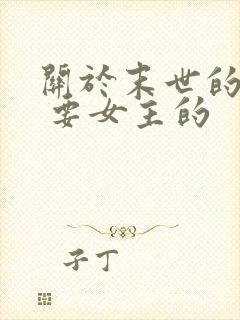 關於末世的
要女主的
子丁